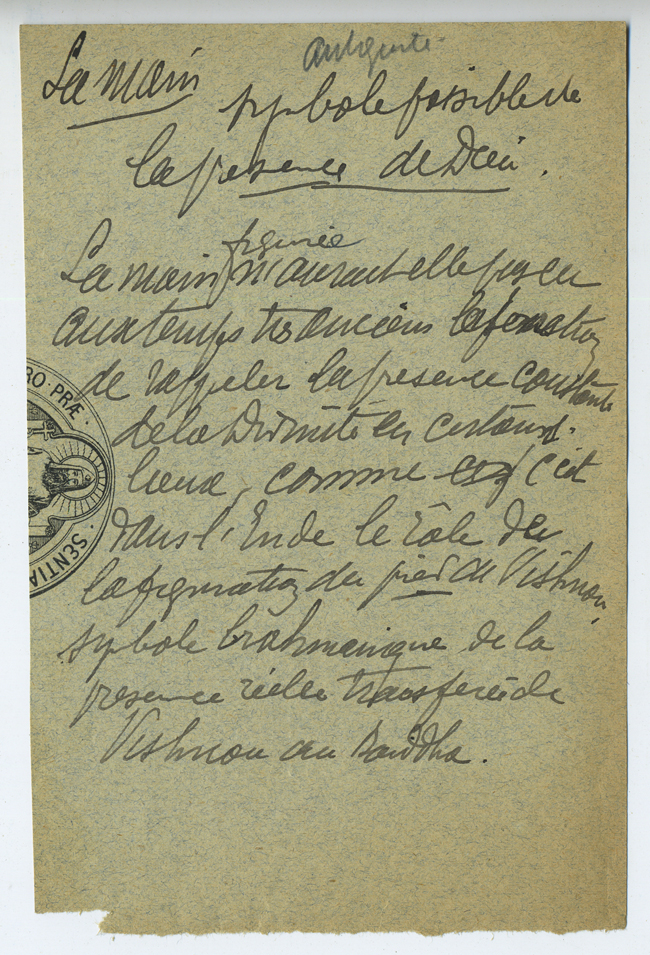 Antiquité
La Main
symbole possible de
la présence de Dieu.
figurée
La main n'aurait elle pas eu
aux temps très anciens la fonction
de rappeler la présence constante
de la Divinité en certains
lieux, comme c'est
dans l'Inde le rôle de
la figuration du pied de Vishnou,
symbole brahmanique de la
présence réelle transféré de
Vishnou au Bouddha.
RO · PRÆ ·
· SENTIA